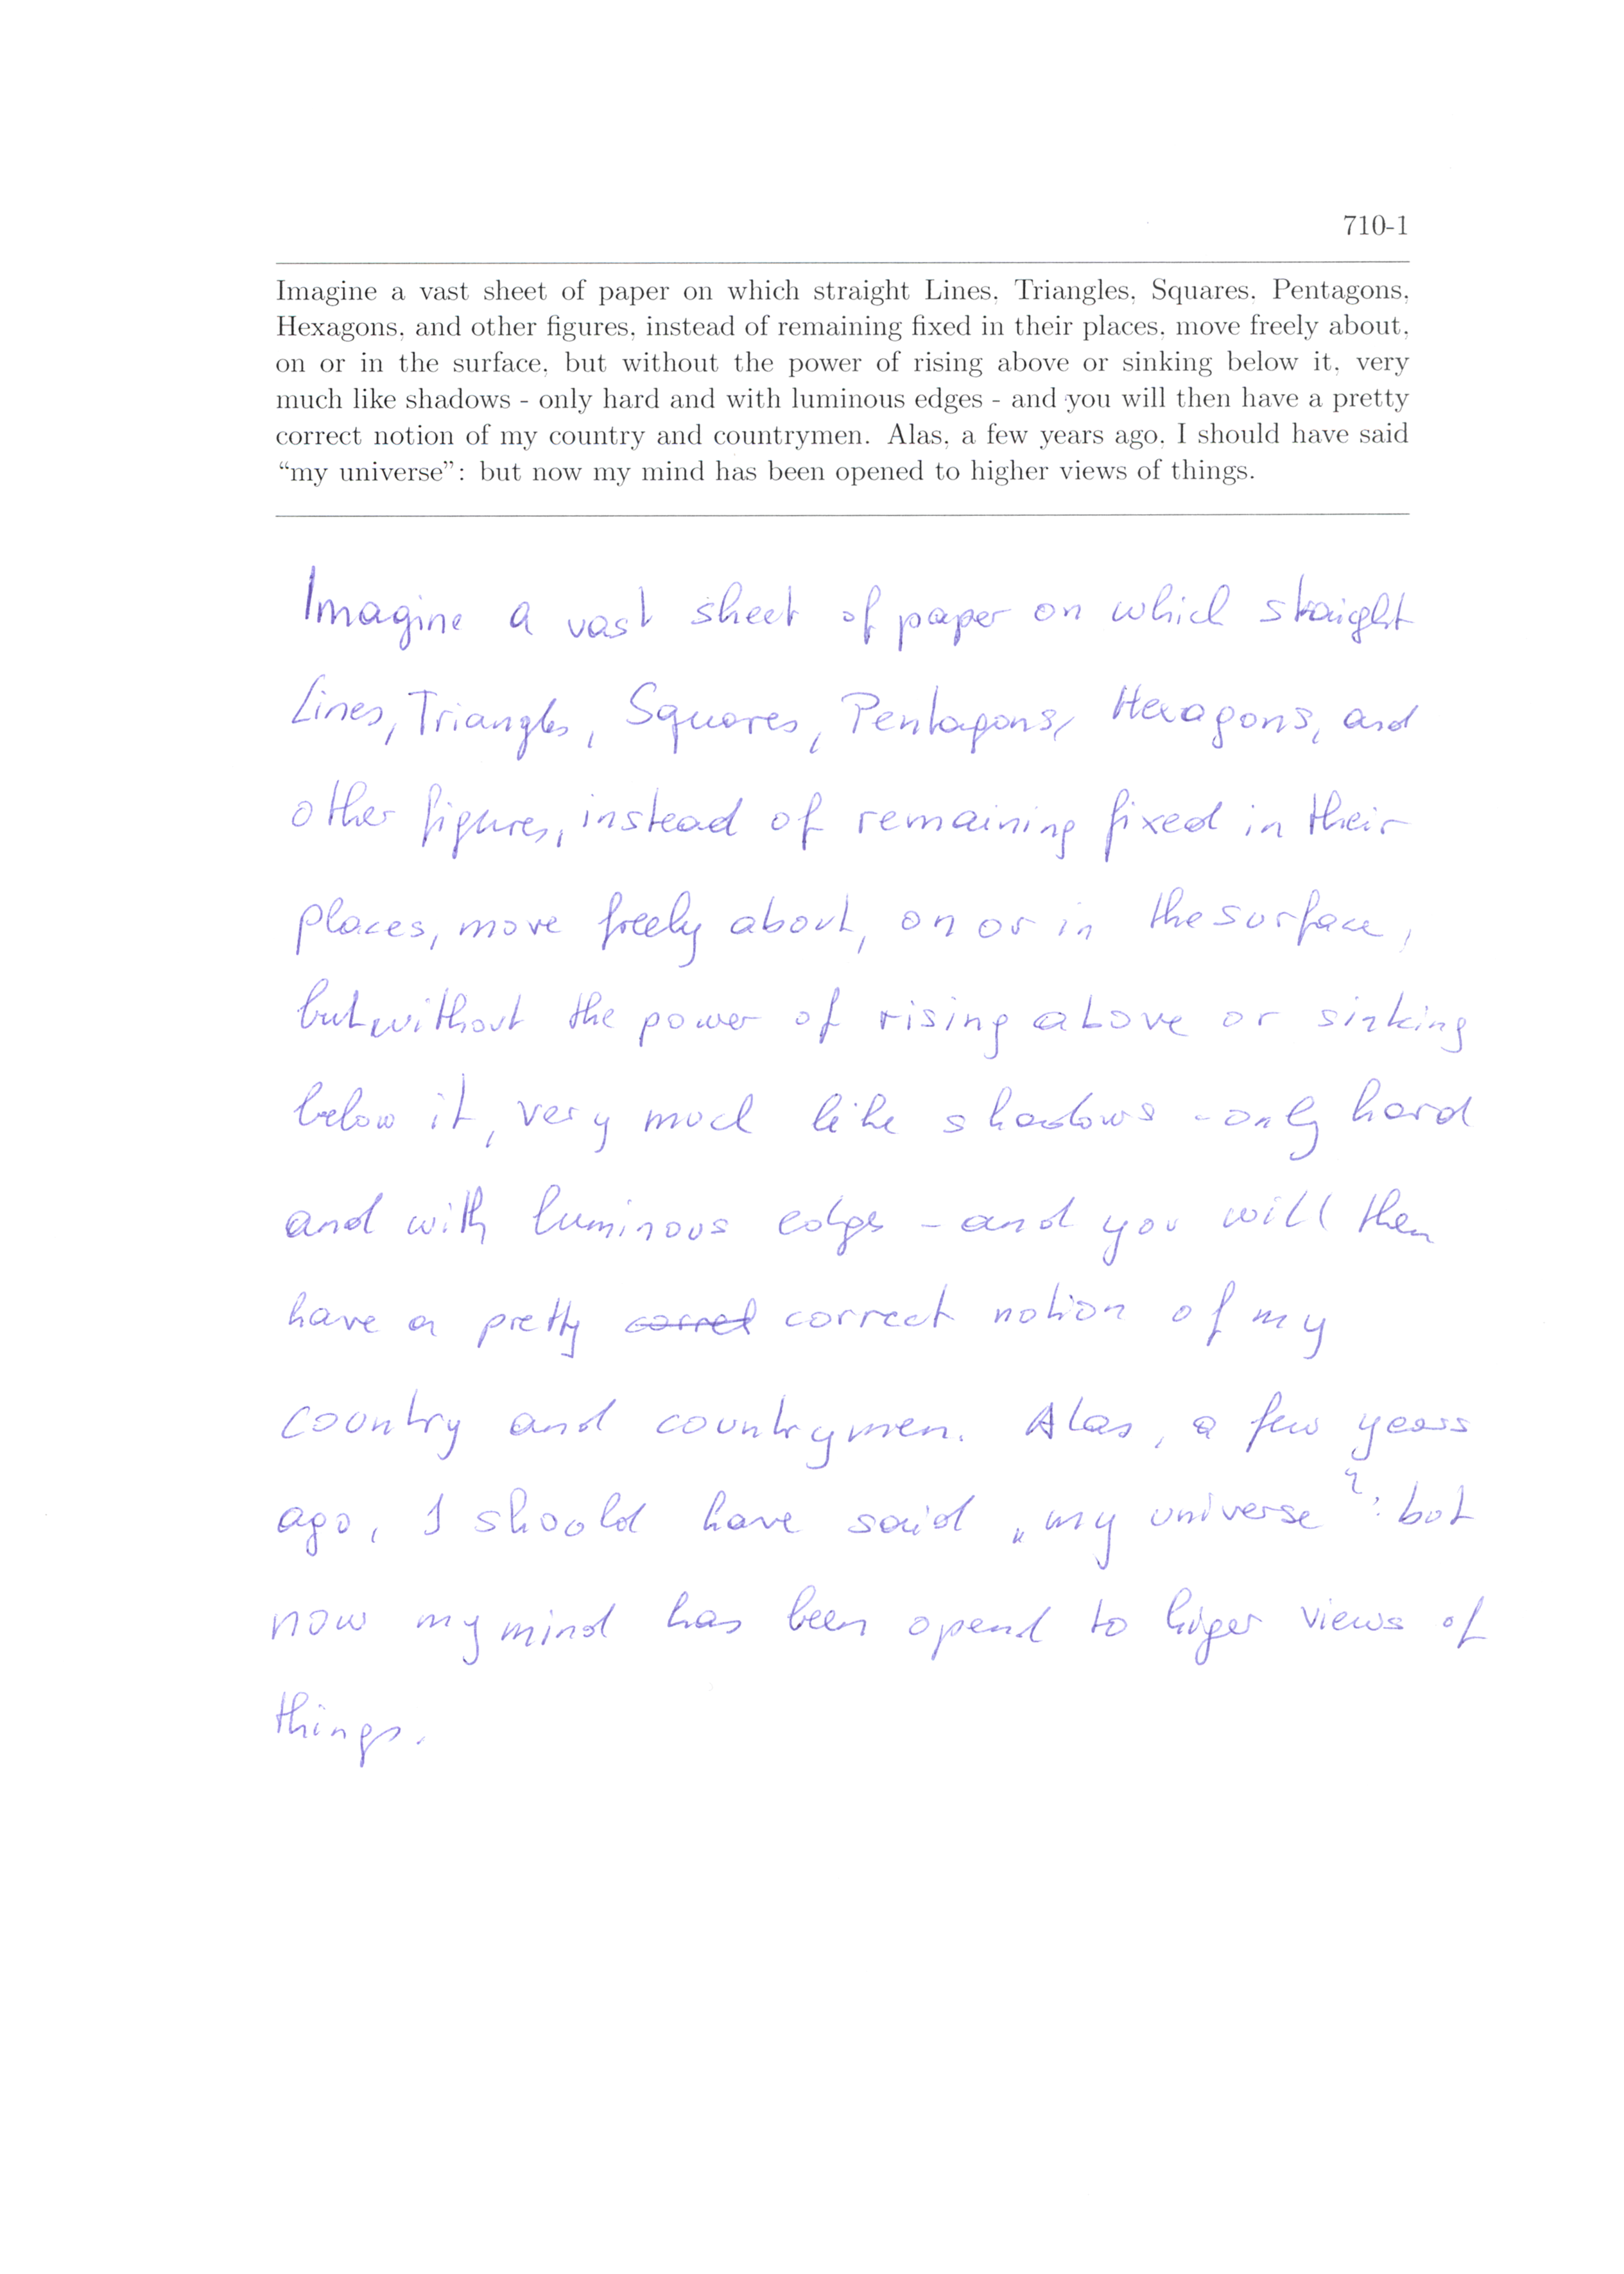 710-1
Imagine a vast sheet of paper on which straight Lines, Triangles, Squares, Pentagons,
Hexagons, and other figures, instead of remaining fixed in their places, move freely about,
on or in the surface, but without the power of rising above or sinking below it, very
much like shadows - only hard and with luminous edges - and you will then have a pretty
correct notion of my country and countrymen. Alas, a few years ago, I should have said
“my universe”: but now my mind has been opened to higher views of things.
Imagine a vast sheet of paper on which straight
Lines, Triangles, Squares, Pentagons, Hexagons, and
other figures, instead of remaining fixed in their
places, move freely about, on or in the surface,
but without the power of rising above or sinking
below it, very much like shadows - only hard
and with luminous edges - and you will then
have a pretty correct notion of my
country and countrymen. Alas, a few years
ago, I should have said „my universe”: but
now my mind has been opend to higer views of
things.